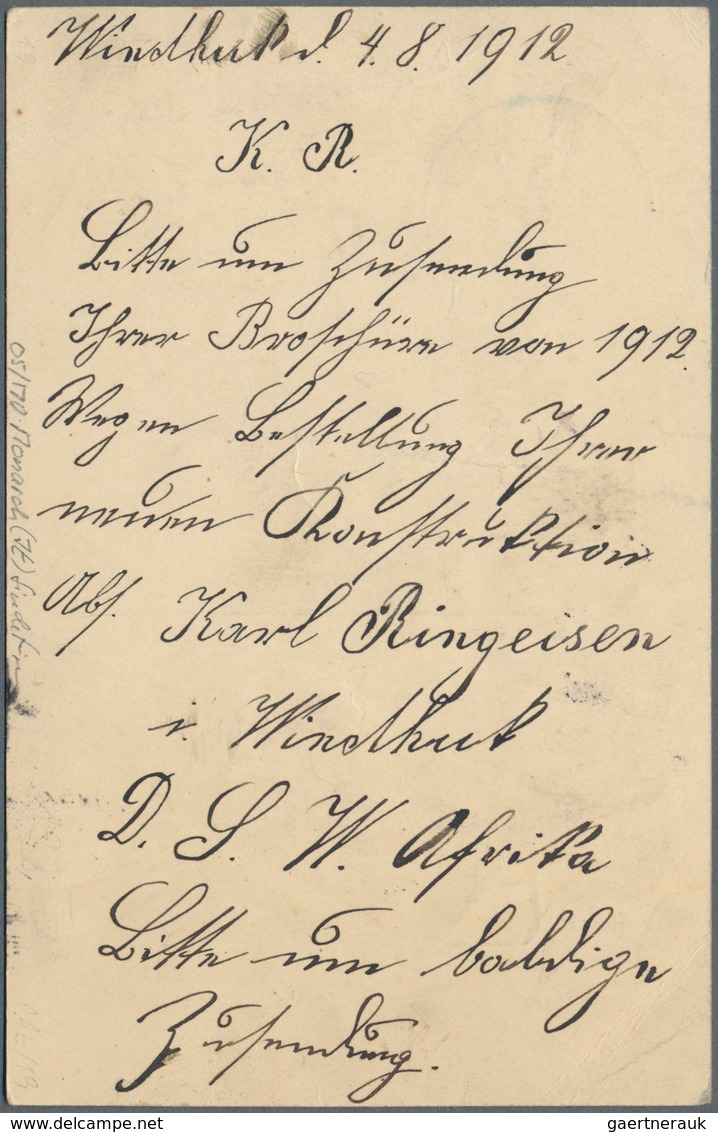 Windhuk d. 4. 8. 1912.
K. R.
Bitte um Zusendung
Ihrer Broschüre von 1912.
Wegen Bestellung Ihrer
neuen Konstruktion
Abs. Karl Ringeisen
i. Windhuk
D. S. W. Afrika
Bitte um baldige
Zusendung.
05/170 Monarch (JE)
gaertnerauk